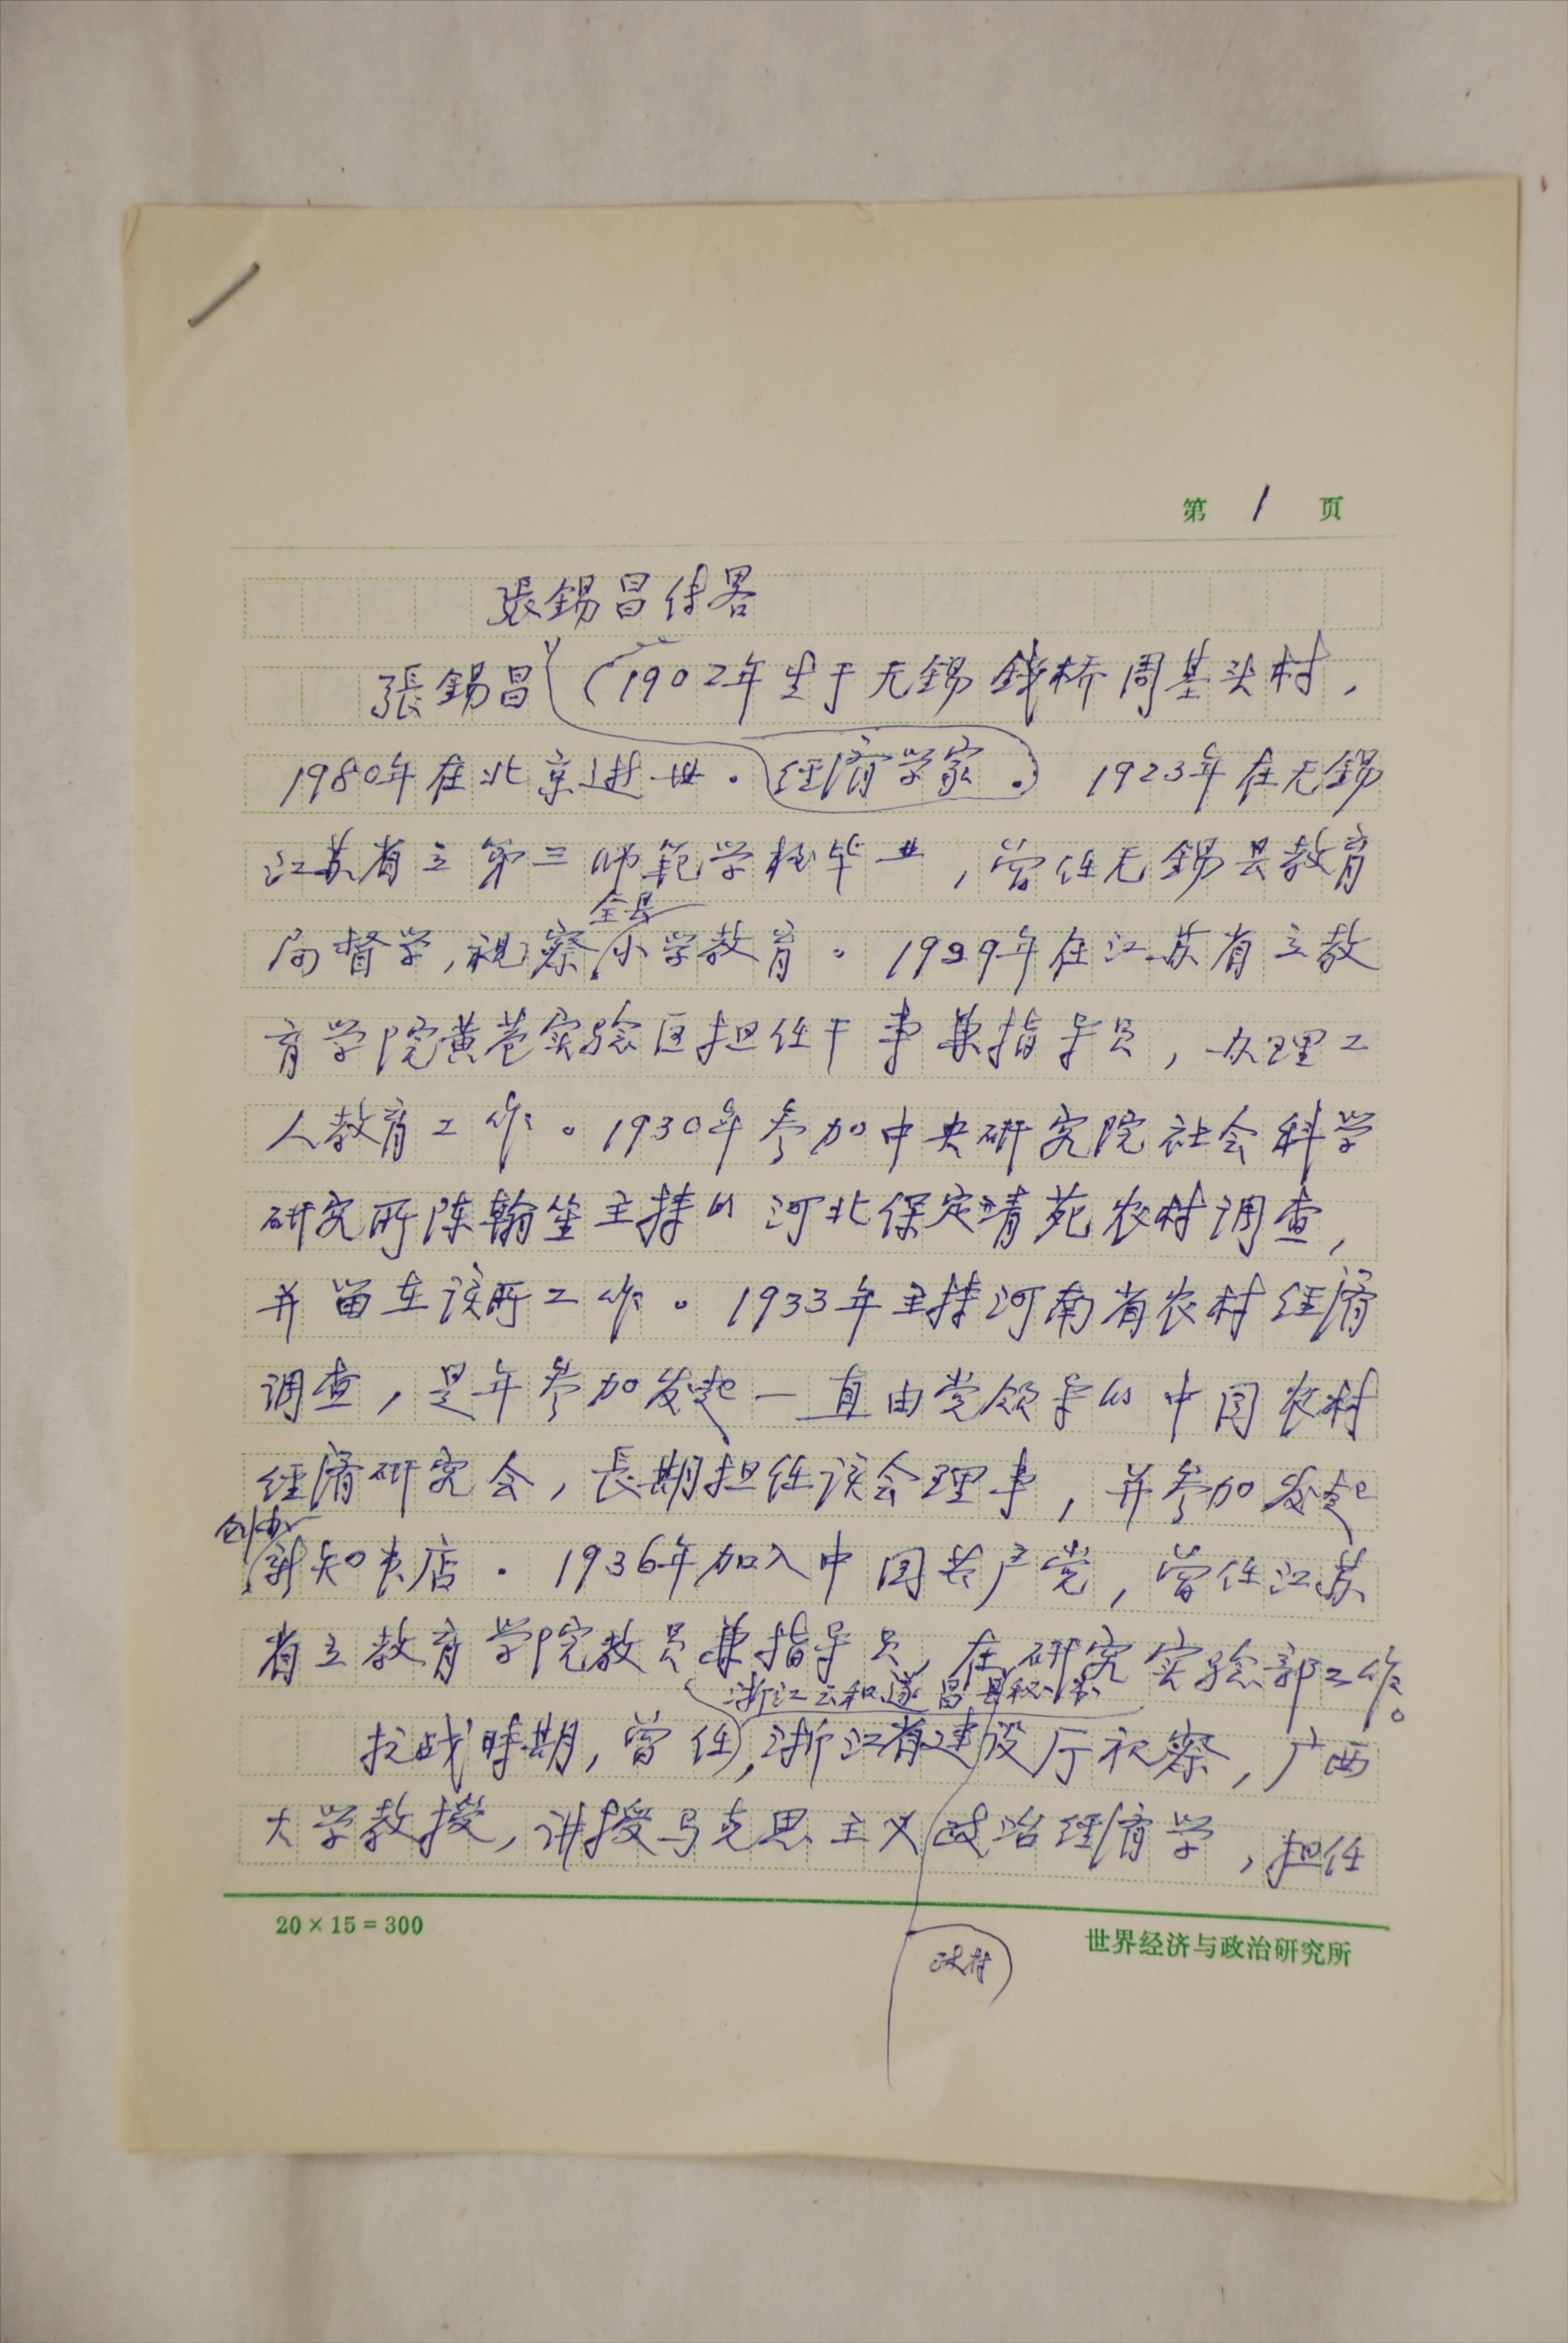 第 1 页
張錫昌传畧
張錫昌(1902年生于无锡錢桥周基头村,
1980年在北京逝世.经济学家.1923年在无锡
江苏省立第三师範学校毕业,曾任无锡县教育
局督学,视察
全县
小学教育。1929年在江苏省立教
育学院黄巷实验区担任干事兼指导员,办理工
人教育工作。1930年参加中央研究院社会科学
研究所陈翰笙主持的河北保定清苑农村调查,
并留在该所工作。1933年主持河南省农村经济
调查,是年参加发起一直由党领导的中国农村
经济研究会,長期担任该会理事,并参加发起
创办
新知书店.1936年加入中国共产党,曾任江苏
省立教育学院教员兼指导员,在研究实验部工作。
浙江云和遂昌县秘书
抗战時期,曾任,浙江省建设厅视察,广西
大学教授,讲授马克思主义政治经济学,担任
20×15=300
世界经济与政治研究所